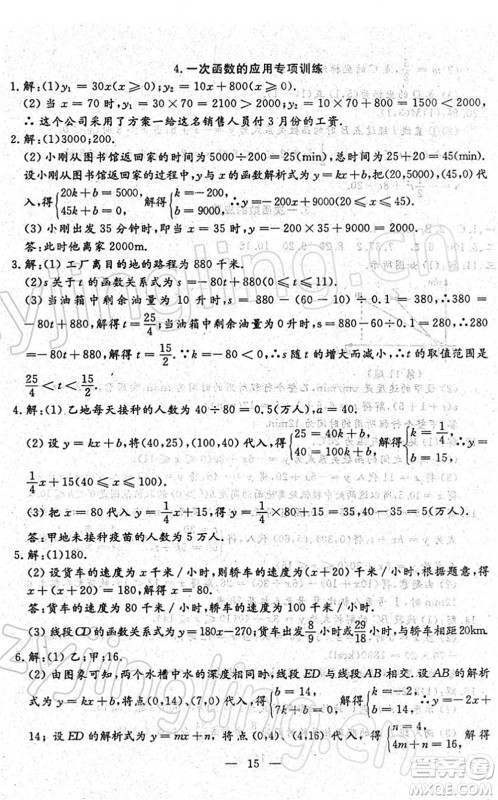 4.一次函数的应用专项训练
1.解:(1)y₁=30x(x⩾0);y₂=10x+800(x⩾0).
(2)当x=70时,y₁=30×70=2100>2000;y₂=10×70+800=1500<2000,
∴这个公司采用了方案一给这名销售人员付3月份的工资.
2.解:(1)3000;200.
(2)小刚从图书馆返回家的时间为5000÷200=25(min),总时间为25+20=45(min).
设小刚从图书馆返回家的过程中,y与x的函数解析式为y=kx+b,把(20,5000),(45,0)代
入,得{20k+b=5000, 45k+b=0.解得{k=-200, b=9000.∴y=-200x+9000(20⩽x⩽45).
(3)小刚出发35分钟时,即当x=35时,y=-200×35+9000=2000.
答:此时他离家2000m.
3.解:(1)工厂离目的地的路程为880千米.
(2)s关于t的函数关系式为s=-80t+880(0⩽t⩽11).
(3)当油箱中剩余油量为10升时,s=880-(60-10)÷0.1=380,∴380=
-80t+880,解得t=25/4;当油箱中剩余油量为0升时,s=880-60÷0.1=280,∴280=
-80t+880,解得t=15/2.∵k=-80<0,∴s随t的增大而减小,∴t的取值范围是
25/4<t<15/2.
4.解:(1)乙地每天接种的人数为40÷80=0.5(万人),
(2)设y=kx+b,将(40,25),(100,40)代入,得{25=40k+b, 40=100k+b,解得{k=1/4, b=15,∴y=
1/4x+15(40⩽x⩽100).
(3)把x=80代入y=1/4x+15,得y=1/4×80+15=35,40-35=5(万人).
答:甲地未接种疫苗的人数为5万人.
5.解:(1)180.
(2)设货车的速度为x千米/小时,则轿车的速度为(x+20)千米/小时,根据题意,得
(x+x+20)=180,解得x=80,∴x+20=100.
答:货车的速度为80千米/小时,轿车的速度为100千米/小时.
(3)线段CD的函数关系式为y=180x-270;货车出发8/9小时或29/18小时,与轿车相距20km.
6.解:(1)乙;甲;16.
(2)由图象可知,两个水槽中水的深度相同时,线段ED与线段AB相交,设AB的解析
式为y=kx+b,将点(0,14),(7,0)代入,得{b=14, 7k+b=0,解得{k=-2, b=14,∴y=-2x+
14;设ED的解析式为y=mx+n,将点(0,4),(4,16)代入,得{n=4, 4m+n=16,
— 15 —
zyjingling.cn
答案圈